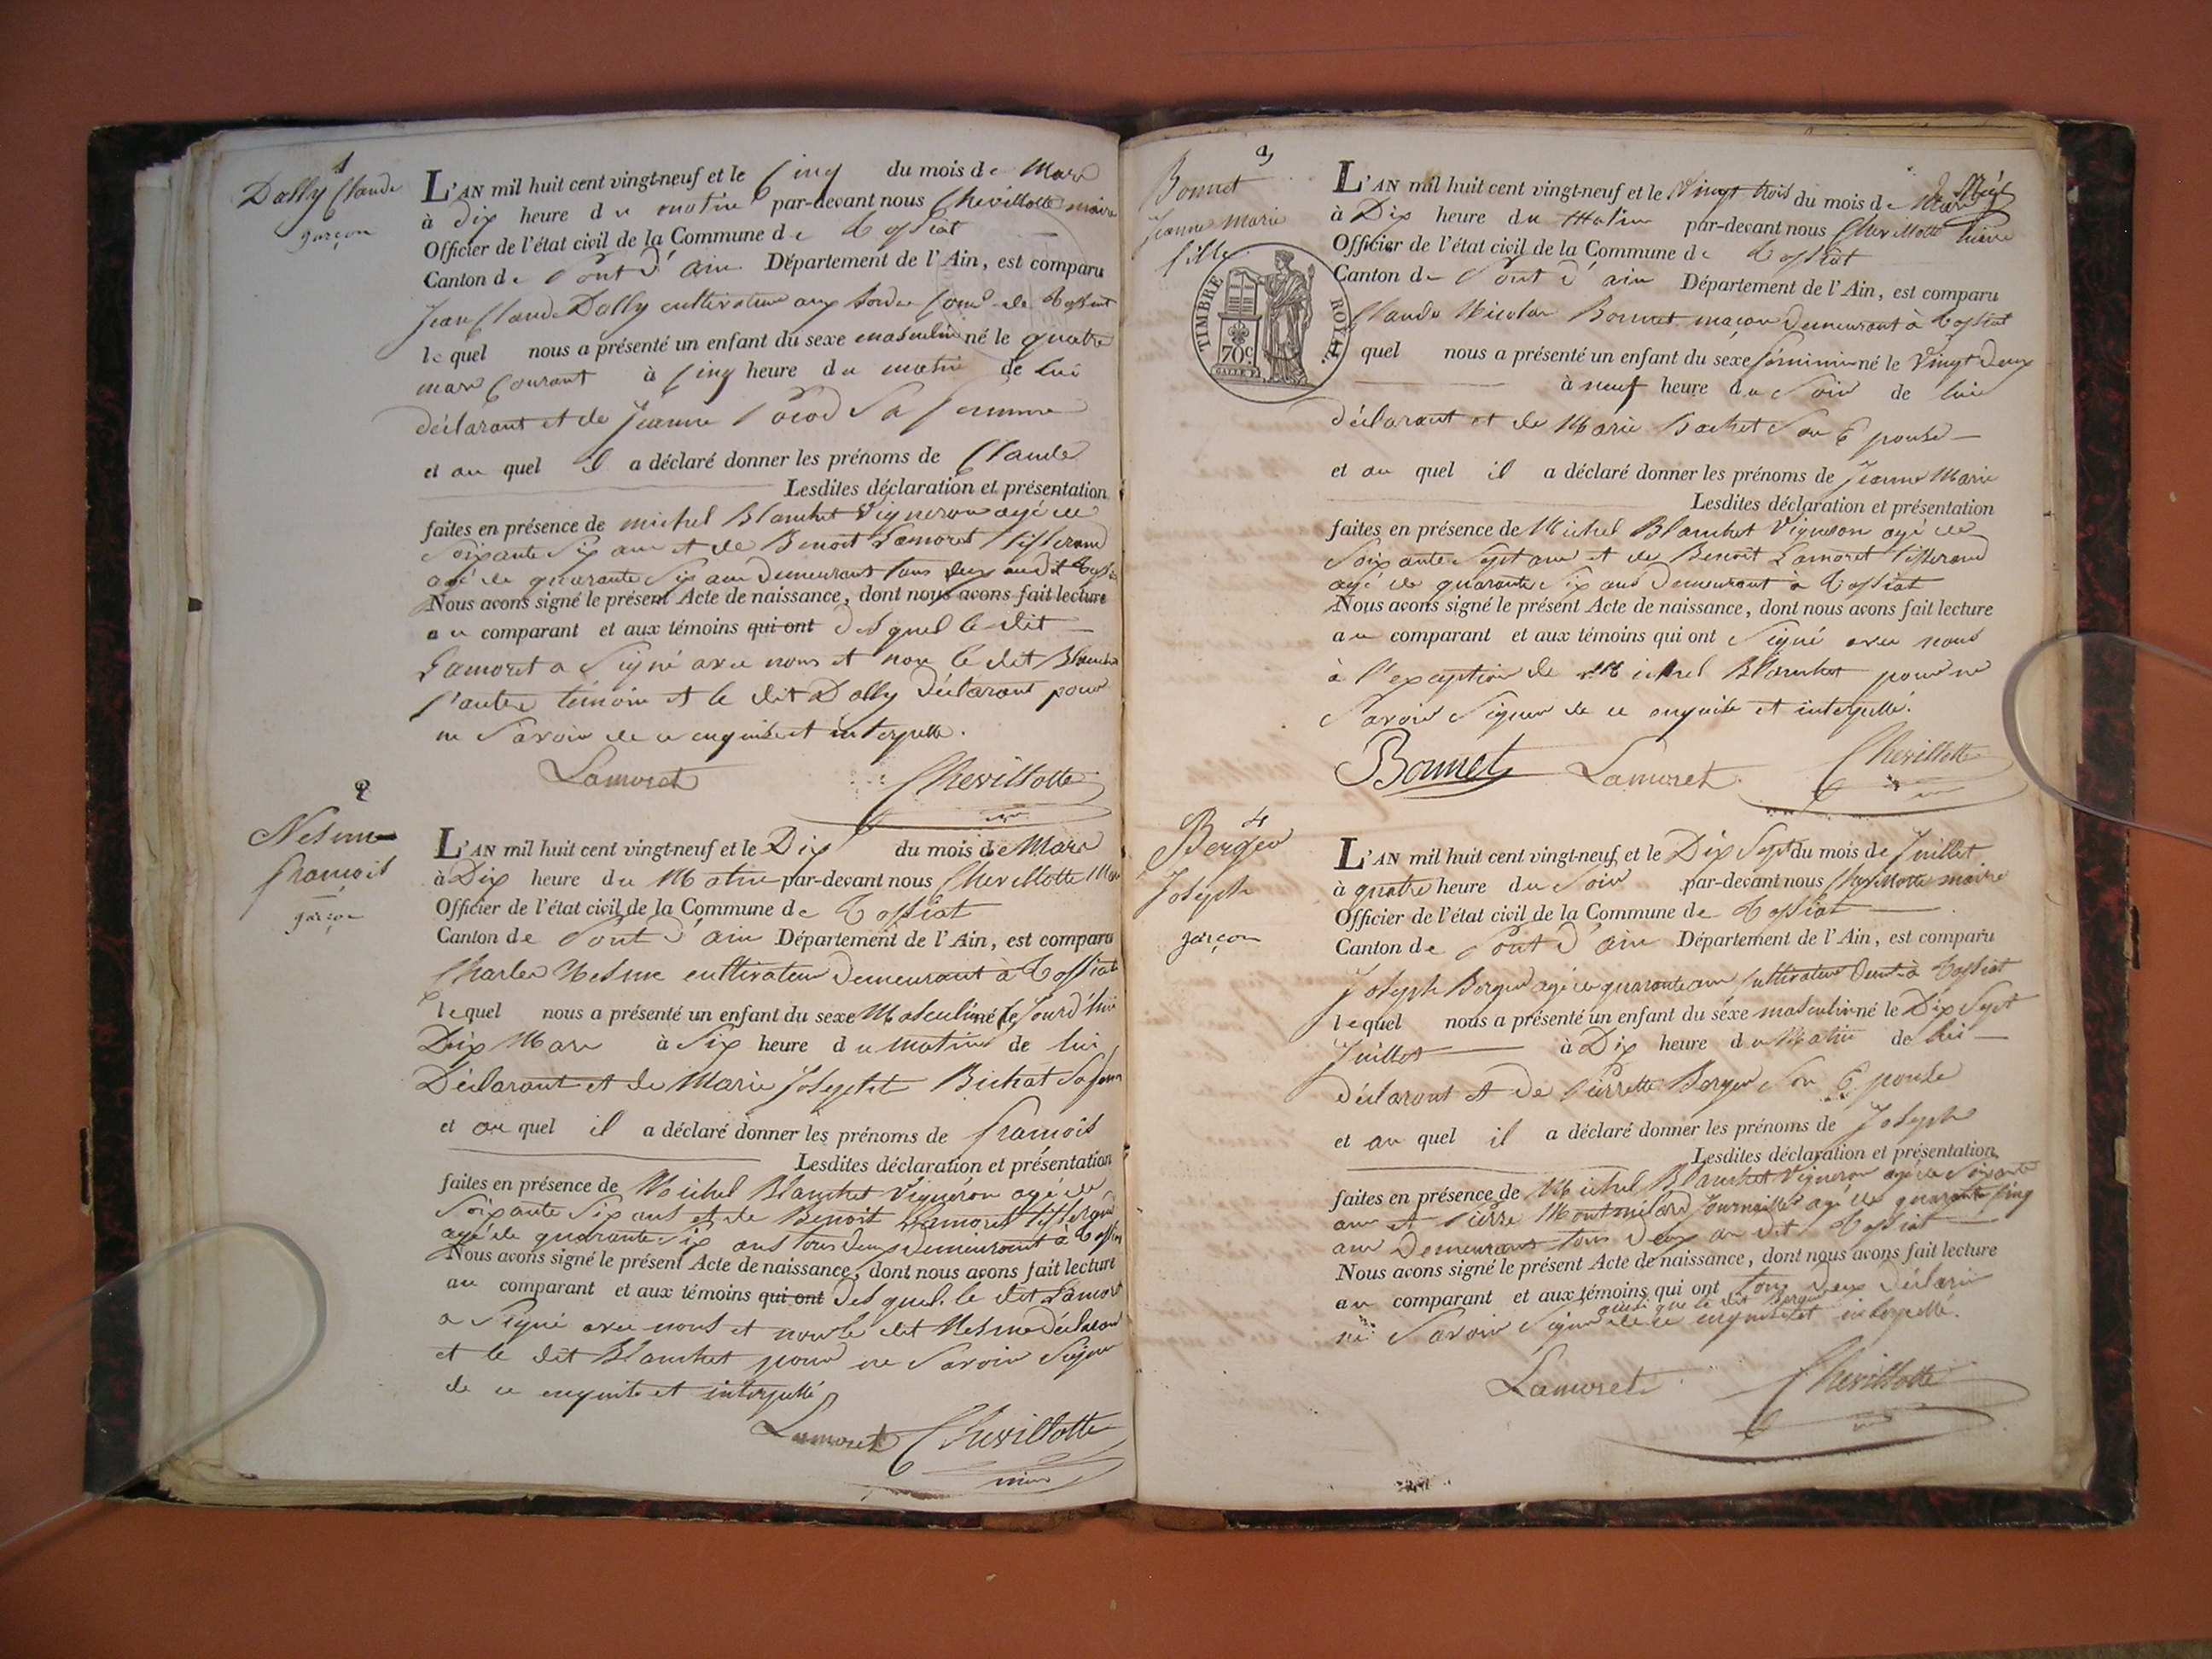 1
Dally Claude
garçon
L'AN mil huit cent vingt-neuf et le Cinq du mois de Mars
à Dix heure du matin par-devant nous Chevillotte maire
Officier de l'état civil de la Commune de Tossiat
Canton de Pont d'ain Département de l'Ain, est comparu
Jean Claude Dally cultivateur aux de Tossiat
lequel nous a présenté un enfant du sexe masculin né le quatre
mars Courant à Cinq heure du matin de lui
déclarant et de Jeanne Sa femme
et au quel il a déclaré donner les prénoms de Claude
Lesdites déclaration et présentation
faites en présence de michel Blanchet Vigneron agé de
Soixante Six ans et de Benoit Lamoret Tisserand
agé de quarante Six ans Demeurant tous deux audit Tossiat
Nous avons signé le présent Acte de naissance, dont nous avons fait lecture
au comparant et aux témoins qui ont desquel le dit
Lamoret a Signé avec nous et non le dit Blanchet
l'autre témoin et le dit Dally déclarant pour
ne Savoir de ce enquis et interpellé.
Lamoret Chevillotte
2
Nesme
francois
garçon
L'AN mil huit cent vingt-neuf et le Dix du mois de Mars
à Dix heure du Matin par-devant nous Chevillotte Maire
Officier de l'état civil de la Commune de Tossiat
Canton de Pont d'ain Département de l'Ain, est comparu
Charles Nesme cultivateur demeurant à Tossiat
lequel nous a présenté un enfant du sexe Masculin né le Jourd'hui
Dix Mars à Six heure du matin de lui
Déclarant et de Marie Josephte Bichat Sa femme
et au quel il a déclaré donner les prénoms de francois
Lesdites déclaration et présentation
faites en présence de Michel Blanchet Vigneron agé de
Soixante Six ans et de Benoit Lamoret Tisserand
agé de quarante Six ans tous deux demeurant à Tossiat
Nous avons signé le présent Acte de naissance, dont nous avons fait lecture
au comparant et aux témoins qui ont desquel le dit Lamoret
a Signé avec nous et non le dit Nesme déclarant
et le dit Blanchet pour ne Savoir Signer
de ce enquis et interpellé
Lamoret Chevillotte
3
Bonnet
Jeanne Marie
fille
TIMBRE ROYAL
70c
L'AN mil huit cent vingt-neuf et le Vingt trois du mois de
à Dix heure du Matin par-devant nous Chevillotte Maire
Officier de l'état civil de la Commune de Tossiat
Canton de Pont d'ain Département de l'Ain, est comparu
Claude Nicolas Bonnet maçon demeurant à Tossiat
quel nous a présenté un enfant du sexe féminin né le Vingt Deux
à neuf heure du Soir de lui
déclarant et de Marie Bachet Son Epouse
et au quel il a déclaré donner les prénoms de Jeanne Marie
Lesdites déclaration et présentation
faites en présence de Michel Blanchet Vigneron agé de
Soixante Sept ans et de Benoit Lamoret Tisserand
agé de quarante Six ans Demeurant à Tossiat
Nous avons signé le présent Acte de naissance, dont nous avons fait lecture
au comparant et aux témoins qui ont Signé avec nous
à l'exception de Michel Blanchet pour ne
Savoir Signer de ce enquis et interpellé.
Bonnet Lamoret Chevillotte
4
Berger
Joseph
garçon
L'AN mil huit cent vingt-neuf et le Dix Sept du mois de Juillet
à quatre heure du Soir par-devant nous Chevillotte maire
Officier de l'état civil de la Commune de Tossiat
Canton de Pont d'ain Département de l'Ain, est comparu
Joseph Berger agé de quarante ans Cultivateur demt à Tossiat
lequel nous a présenté un enfant du sexe masculin né le Dix Sept
Juillet à Dix heure du Matin de lui
déclarant et de Pierrette Berger Son Epouse
et au quel il a déclaré donner les prénoms de Joseph
Lesdites déclaration et présentation
faites en présence de Michel Blanchet Vigneron agé de Soixante
ans et Pierre Journalier agé de quarante Cinq
ans Demeurans tous deux au dit Tossiat
Nous avons signé le présent Acte de naissance, dont nous avons fait lecture
au comparant et aux témoins qui ont tous deux déclaré
ainsi que le dit Berger
ne Savoir Signer de ce enquis et interpellé.
Lamoret Chevillotte